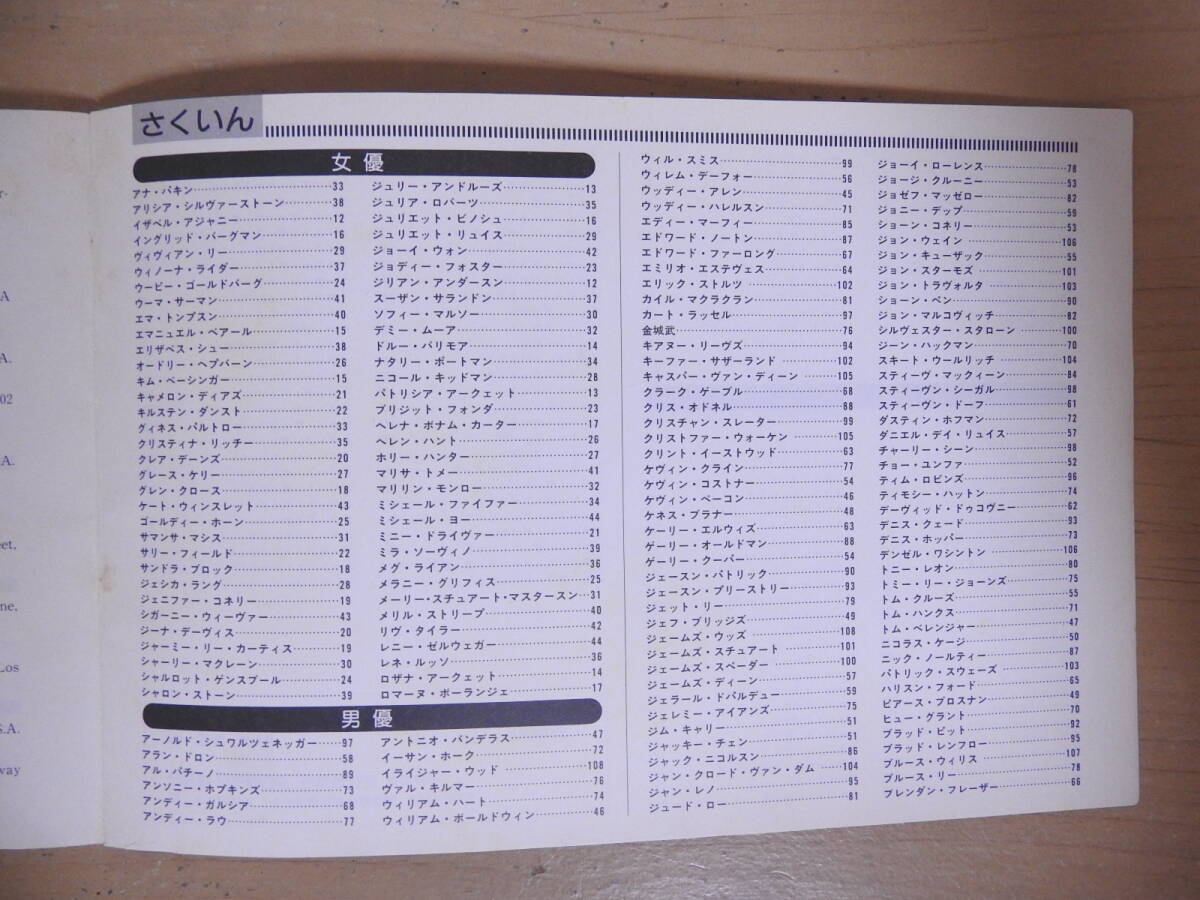 さくいん
女優
アナ・パキン……33
アリシア・シルヴァーストーン……38
イザベル・アジャニー……12
イングリッド・バーグマン……16
ヴィヴィアン・リー……29
ウィノーナ・ライダー……37
ウーピー・ゴールドバーグ……24
ウーマ・サーマン……41
エマ・トンプスン……40
エマニュエル・ベアール……15
エリザベス・シュー……38
オードリー・ヘプバーン……26
キム・ベーシンガー……15
キャメロン・ディアズ……21
キルステン・ダンスト……22
グィネス・パルトロー……33
クリスティナ・リッチー……35
クレア・デーンズ……20
グレース・ケリー……27
グレン・クロース……18
ケート・ウィンスレット……43
ゴールディー・ホーン……25
サマンサ・マシス……31
サリー・フィールド……22
サンドラ・ブロック……18
ジェシカ・ラング……28
ジェニファー・コネリー……19
シガーニー・ウィーヴァー……43
ジーナ・デーヴィス……20
ジャーミー・リー・カーティス……19
シャーリー・マクレーン……30
シャルロット・ゲンスブール……24
シャロン・ストーン……39
ジュリー・アンドルーズ……13
ジュリア・ロバーツ……35
ジュリエット・ビノシュ……16
ジュリエット・リュイス……29
ジョーイ・ウォン……42
ジョディー・フォスター……23
ジリアン・アンダースン……12
スーザン・サランドン……37
ソフィー・マルソー……30
デミー・ムーア……32
ドルー・バリモア……14
ナタリー・ポートマン……34
ニコール・キッドマン……28
パトリシア・アークェット……13
ブリジット・フォンダ……23
ヘレナ・ボナム・カーター……17
ヘレン・ハント……26
ホリー・ハンター……27
マリサ・トメー……41
マリリン・モンロー……32
ミシェール・ファイファー……34
ミシェール・ヨー……44
ミニー・ドライヴァー……21
ミラ・ソーヴィノ……39
メグ・ライアン……36
メラニー・グリフィス……25
メーリー・スチュアート・マスタースン……31
メリル・ストリープ……40
リヴ・タイラー……42
レニー・ゼルウェガー……44
レネ・ルッソ……36
ロザナ・アークェット……14
ロマーヌ・ボーランジェ……17
男優
アーノルド・シュワルツェネッガー……97
アラン・ドロン……58
アル・パチーノ……89
アンソニー・ホプキンズ……73
アンディー・ガルシア……68
アンディー・ラウ……77
アントニオ・バンデラス……47
イーサン・ホーク……72
イライジャー・ウッド……108
ヴァル・キルマー……76
ウィリアム・ハート……74
ウィリアム・ボールドウィン……46
ウィル・スミス……99
ウィレム・デーフォー……56
ウッディー・アレン……45
ウッディー・ハレルスン……71
エディー・マーフィー……85
エドワード・ノートン……87
エドワード・ファーロング……67
エミリオ・エステヴェス……64
エリック・ストルツ……102
カイル・マクラクラン……81
カート・ラッセル……97
金城武……76
キアヌー・リーヴズ……94
キーファー・サザーランド……102
キャスパー・ヴァン・ディーン……105
クラーク・ゲーブル……68
クリス・オドネル……88
クリスチャン・スレーター……99
クリストファー・ウォーケン……105
クリント・イーストウッド……63
ケヴィン・クライン……77
ケヴィン・コストナー……54
ケヴィン・ベーコン……46
ケネス・ブラナー……48
ケーリー・エルウィズ……63
ゲーリー・オールドマン……88
ゲーリー・クーパー……54
ジェースン・パトリック……90
ジェースン・プリーストリー……93
ジェット・リー……79
ジェフ・ブリッジズ……49
ジェームズ・ウッズ……108
ジェームズ・スチュアート……101
ジェームズ・スペーダー……100
ジェームズ・ディーン……57
ジェラール・ドパルデュー……59
ジェレミー・アイアンズ……75
ジム・キャリー……51
ジャッキー・チェン……51
ジャック・ニコルスン……86
ジャン・クロード・ヴァン・ダム……104
ジャン・レノ……95
ジュード・ロー……81
ジョーイ・ローレンス……78
ジョージ・クルーニー……53
ジョゼフ・マッゼロー……82
ジョニー・デップ……59
ショーン・コネリー……53
ジョン・ウェイン……106
ジョン・キューザック……55
ジョン・スターモズ……101
ジョン・トラヴォルタ……103
ショーン・ペン……90
ジョン・マルコヴィッチ……82
シルヴェスター・スタローン……100
ジーン・ハックマン……70
スキート・ウールリッチ……104
スティーヴ・マックィーン……84
スティーヴン・シーガル……98
スティーヴン・ドーフ……61
ダスティン・ホフマン……72
ダニエル・デイ・リュイス……57
チャーリー・シーン……98
チョー・ユンファ……52
ティム・ロビンズ……96
ティモシー・ハットン……74
デーヴィッド・ドゥコヴニー……62
デニス・クェード……93
デニス・ホッパー……73
デンゼル・ワシントン……106
トニー・レオン……80
トミー・リー・ジョーンズ……75
トム・クルーズ……55
トム・ハンクス……71
トム・ベレンジャー……47
ニコラス・ケージ……50
ニック・ノールティー……87
パトリック・スウェーズ……103
ハリスン・フォード……65
ピアース・ブロスナン……49
ヒュー・グラント……70
ブラッド・ピット……92
ブラッド・レンフロー……95
ブルース・ウィリス……107
ブルース・リー……78
ブレンダン・フレーザー……66